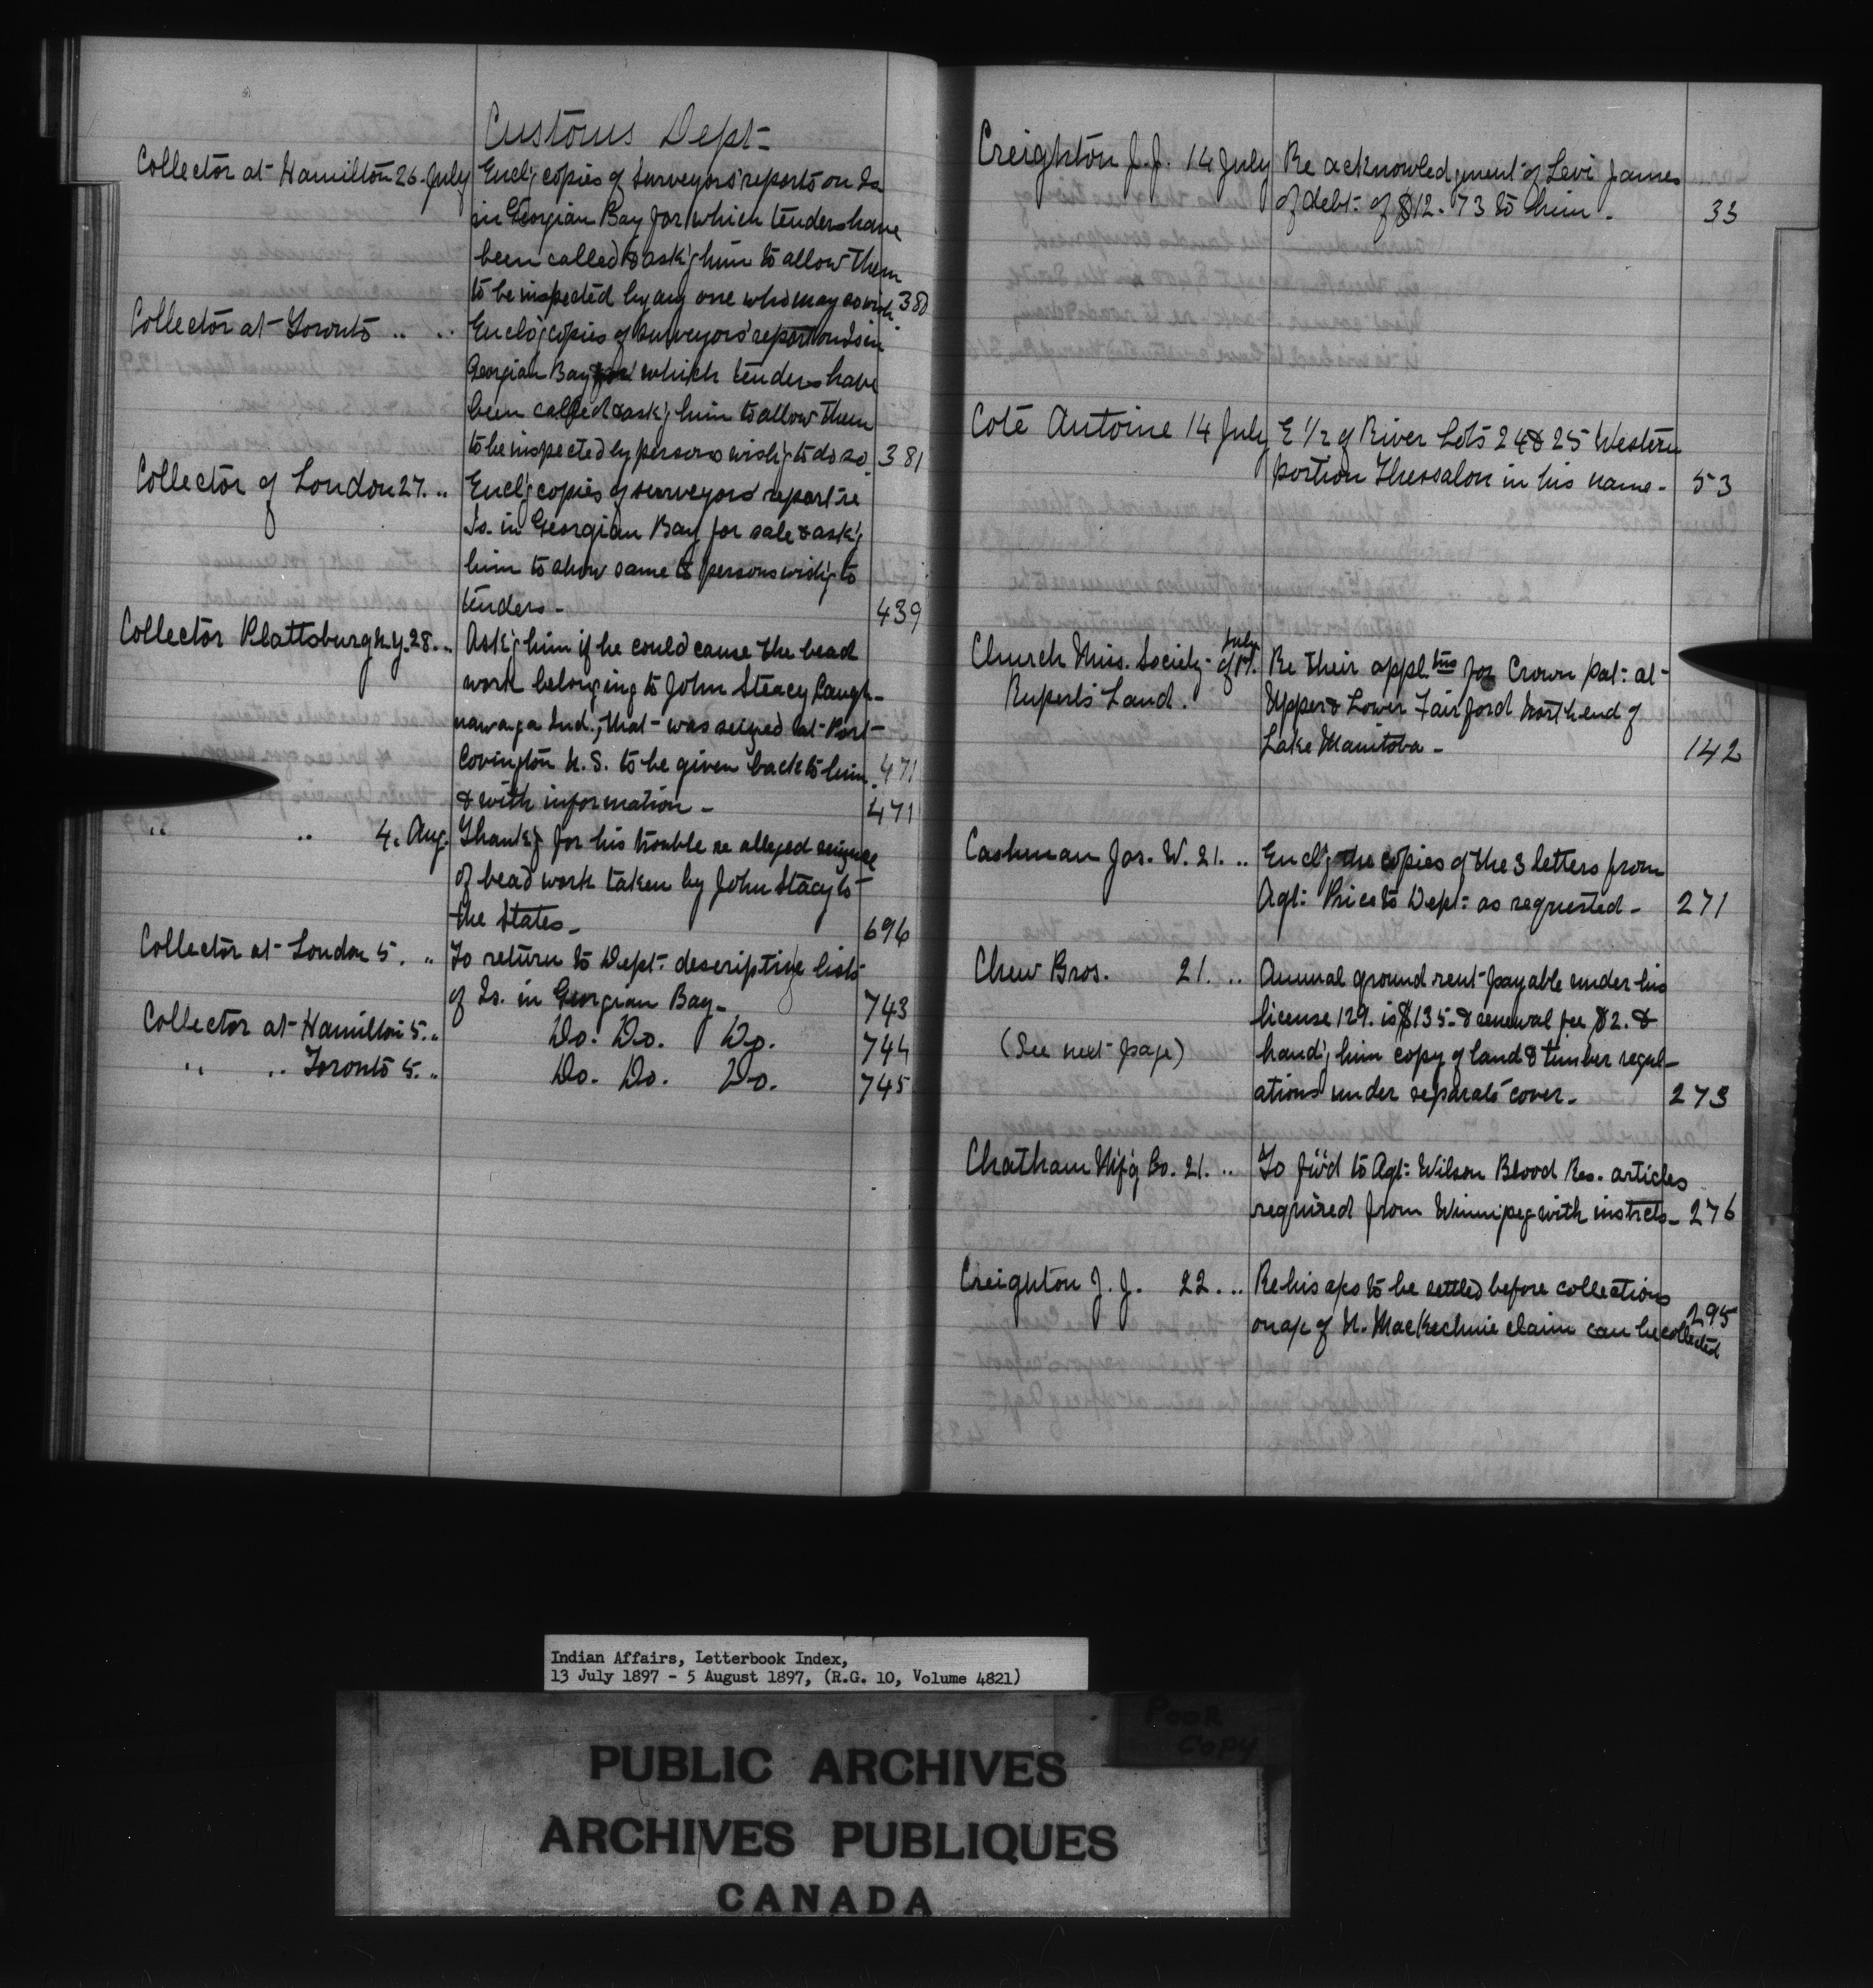 Customs Dept-
Collector at Hamilton 26. July Encl'g copies of Surveyors' reports on Is
in Georgian Bay for which tenders have
been called & ask'g him to allow them
to be inspected by any one who may so wish. 380
Collector at Toronto .. .. Enclo'g copies of Surveyors' report on Is in
Georgian Bay for which tenders have
been called & ask'g him to allow them
to be inspected by persons wish'g to do so. 381
Collector of London 27. .. Encl'g copies of surveyors' report re
Is. in Georgian Bay for sale & ask'g
him to show same to persons wish'g to
tenders - 439
Collector Plattsburg N.Y. 28. .. Ask'g him if he could cause the bead
work belonging to John Stacey Caugh-
nawaga Ind., that was seized at Port
Covington U.S. to be given back to him. 471
& with information - 471
.. .. 4. Aug. Thank'g for his trouble re alleged seizure
of bead work taken by John Stacy to
the States - 696
Collector at London 5. .. To return to Dept. descriptive lists
of Is. in Georgian Bay - 743
Collector at Hamilton 5. .. Do. Do. Do. 744
.. .. Toronto 5. .. Do. Do. Do. 745
Creighton J.J. 14 July Re acknowledgment of Levi James
of debt of $12.73 to him. 33
Coté Antoine 14 July E 1/2 of River Lots 24 & 25 Western
portion Thessalon in his name - 53
Church Miss. Society of July 17. Re their appl.tns for Crown Pat: at
Rupert's Land. Upper & Lower Fairford North end of
Lake Manitoba - 142
Cashman Jas. W. 21. .. Encl'g the copies of the 3 letters from
Agt: Price to Dept: as requested - 271
Chew Bros. 21. .. Annual ground rent payable under his
license 129. is $135. & renewal fee $2. &
(See next page) hand'g him copy of land & timber regul-
ations under separate cover - 273
Chatham Mf'g Co. 21. .. To fw'd to Agt: Wilson Blood Res. articles
required from Winnipeg with instrcts - 276
Creighton J.J. 22. .. Re his a/cs to be settled before collections
on a/c of N. MacKechnie claim can be collected 295
Indian Affairs, Letterbook Index,
13 July 1897 - 5 August 1897, (R.G. 10, Volume 4821)
POOR
COPY
PUBLIC ARCHIVES
ARCHIVES PUBLIQUES
CANADA